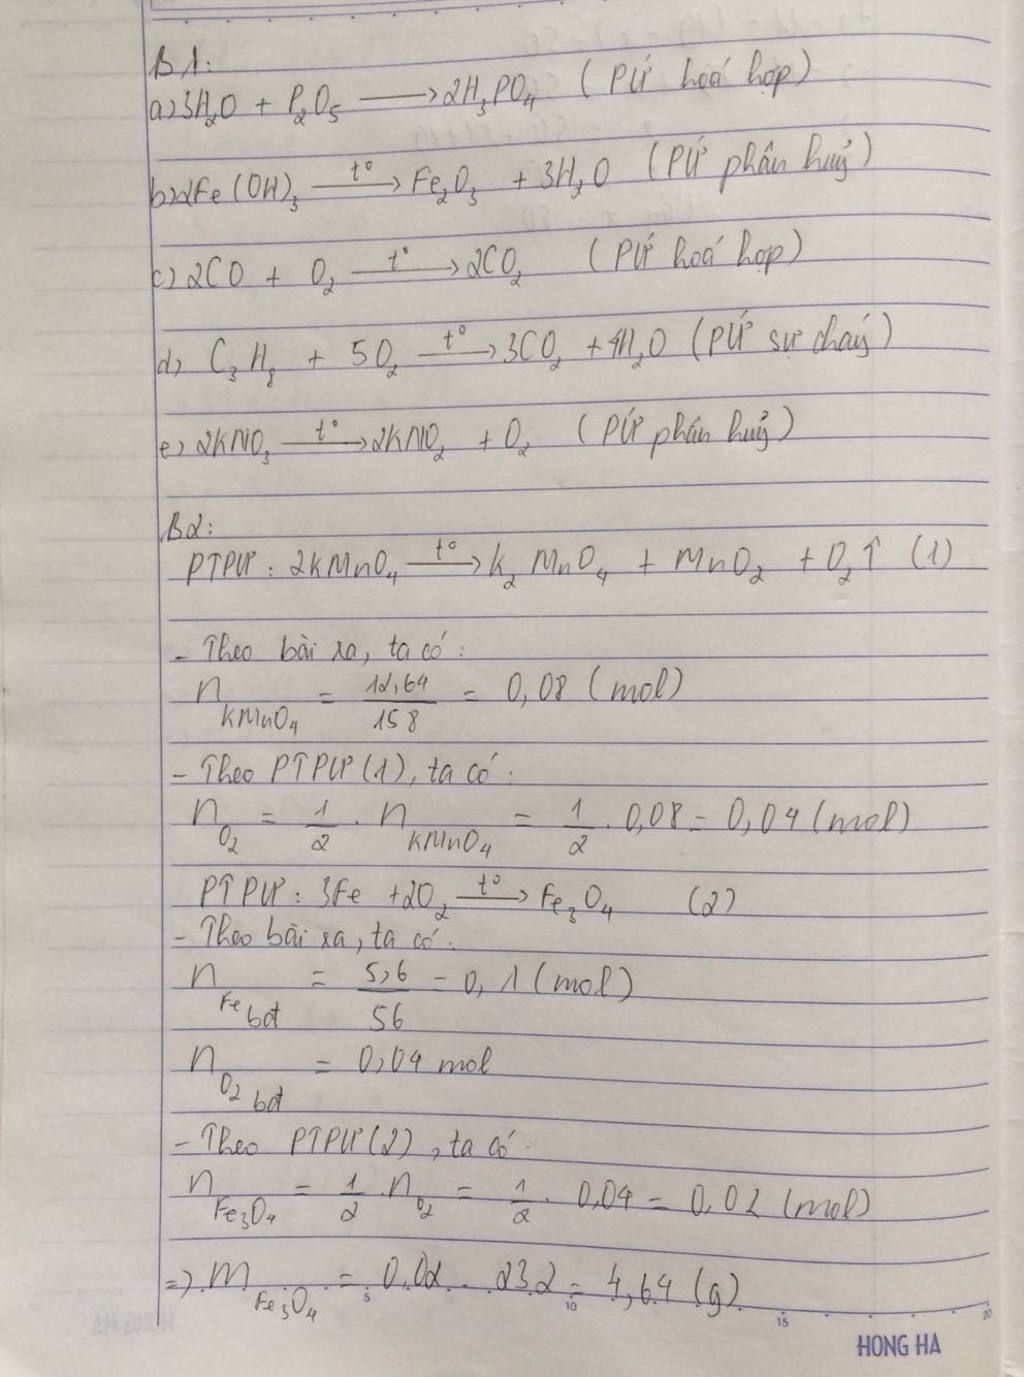 B1:
a) 3H₂O + P₂O₅ ⟶ 2H₃PO₄ (PƯ hoá hợp)
b) 2Fe(OH)₃ t°⟶ Fe₂O₃ + 3H₂O (PƯ phân huỷ)
c) 2CO + O₂ t°⟶ 2CO₂ (PƯ hoá hợp)
d) C₃H₈ + 5O₂ t°⟶ 3CO₂ + 4H₂O (PƯ sự cháy)
e) 2KNO₃ t°⟶ 2KNO₂ + O₂ (PƯ phân huỷ)
B2:
PTPƯ: 2KMnO₄ t°⟶ K₂MnO₄ + MnO₂ + O₂↑ (1)
- Theo bài ra, ta có:
n KMnO₄ = 12,64/158 = 0,08 (mol)
- Theo PTPƯ (1), ta có:
n O₂ = 1/2 . n KMnO₄ = 1/2 . 0,08 = 0,04 (mol)
PTPƯ: 3Fe + 2O₂ t°⟶ Fe₃O₄ (2)
- Theo bài ra, ta có:
n Fe bđ = 5,6/56 = 0,1 (mol)
n O₂ bđ = 0,04 mol
- Theo PTPƯ (2), ta có:
n Fe₃O₄ = 1/2 . n O₂ = 1/2 . 0,04 = 0,02 (mol)
=> m Fe₃O₄ = 0,02 . 232 = 4,64 (g)
5 10 15 20
HONG HA